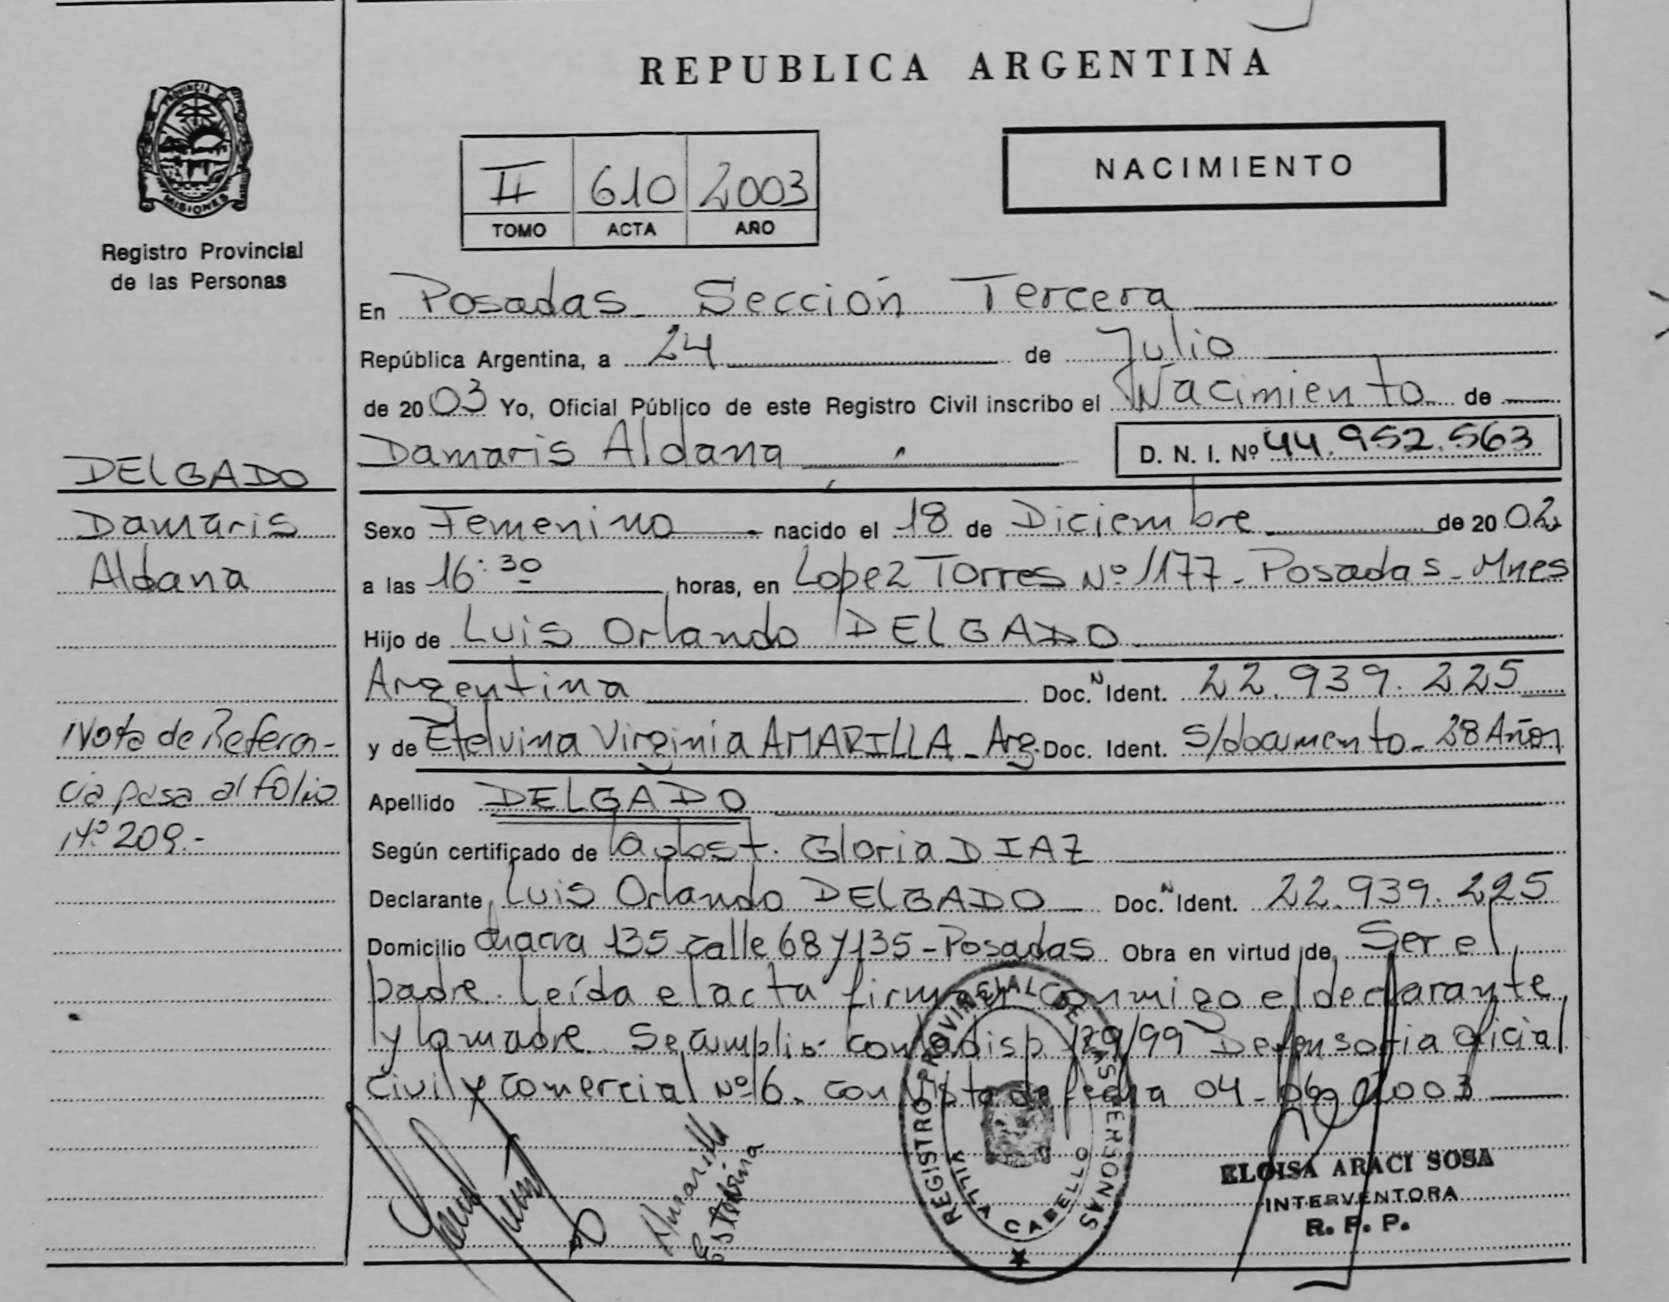 REPUBLICA ARGENTINA
PROVINCIA DE
MISIONES
Registro Provincial
de las Personas
II 610 2003
TOMO ACTA AÑO
NACIMIENTO
En Posadas - Sección Tercera
República Argentina, a 24 de Julio
de 2003 Yo, Oficial Público de este Registro Civil inscribo el Nacimiento de
Damaris Aldana D. N. I. Nº 44.952.563
Sexo Femenino nacido el 18 de Diciembre de 2002
a las 16:30 horas, en Lopez Torres Nº 1177 - Posadas - Mnes
Hijo de Luis Orlando DELGADO
Argentina Doc. N Ident. 22.939.225
y de Etelvina Virginia AMARILLA - Arg. Doc. Ident. s/documento - 28 Años
Apellido DELGADO
Según certificado de la obst. Gloria DIAZ
Declarante Luis Orlando DELGADO Doc. N Ident. 22.939.225
Domicilio chacra 135 calle 68 y 135 - Posadas Obra en virtud de Ser el
padre. Leída el acta firman conmigo el declarante
y la madre. Se cumplio con la disp 129/99 Defensoria oficial
Civil y comercial Nº 6. con vista de fecha 04-06-2003
DELGADO
Damaris
Aldana
Nota de Referen-
cia pasa al folio
Nº 209.-
Amarilla
Etelvina
REGISTRO PROVINCIAL DE LAS PERSONAS
VILLA CABELLO
ELOISA ARACI SOSA
INTERVENTORA
R. P. P.